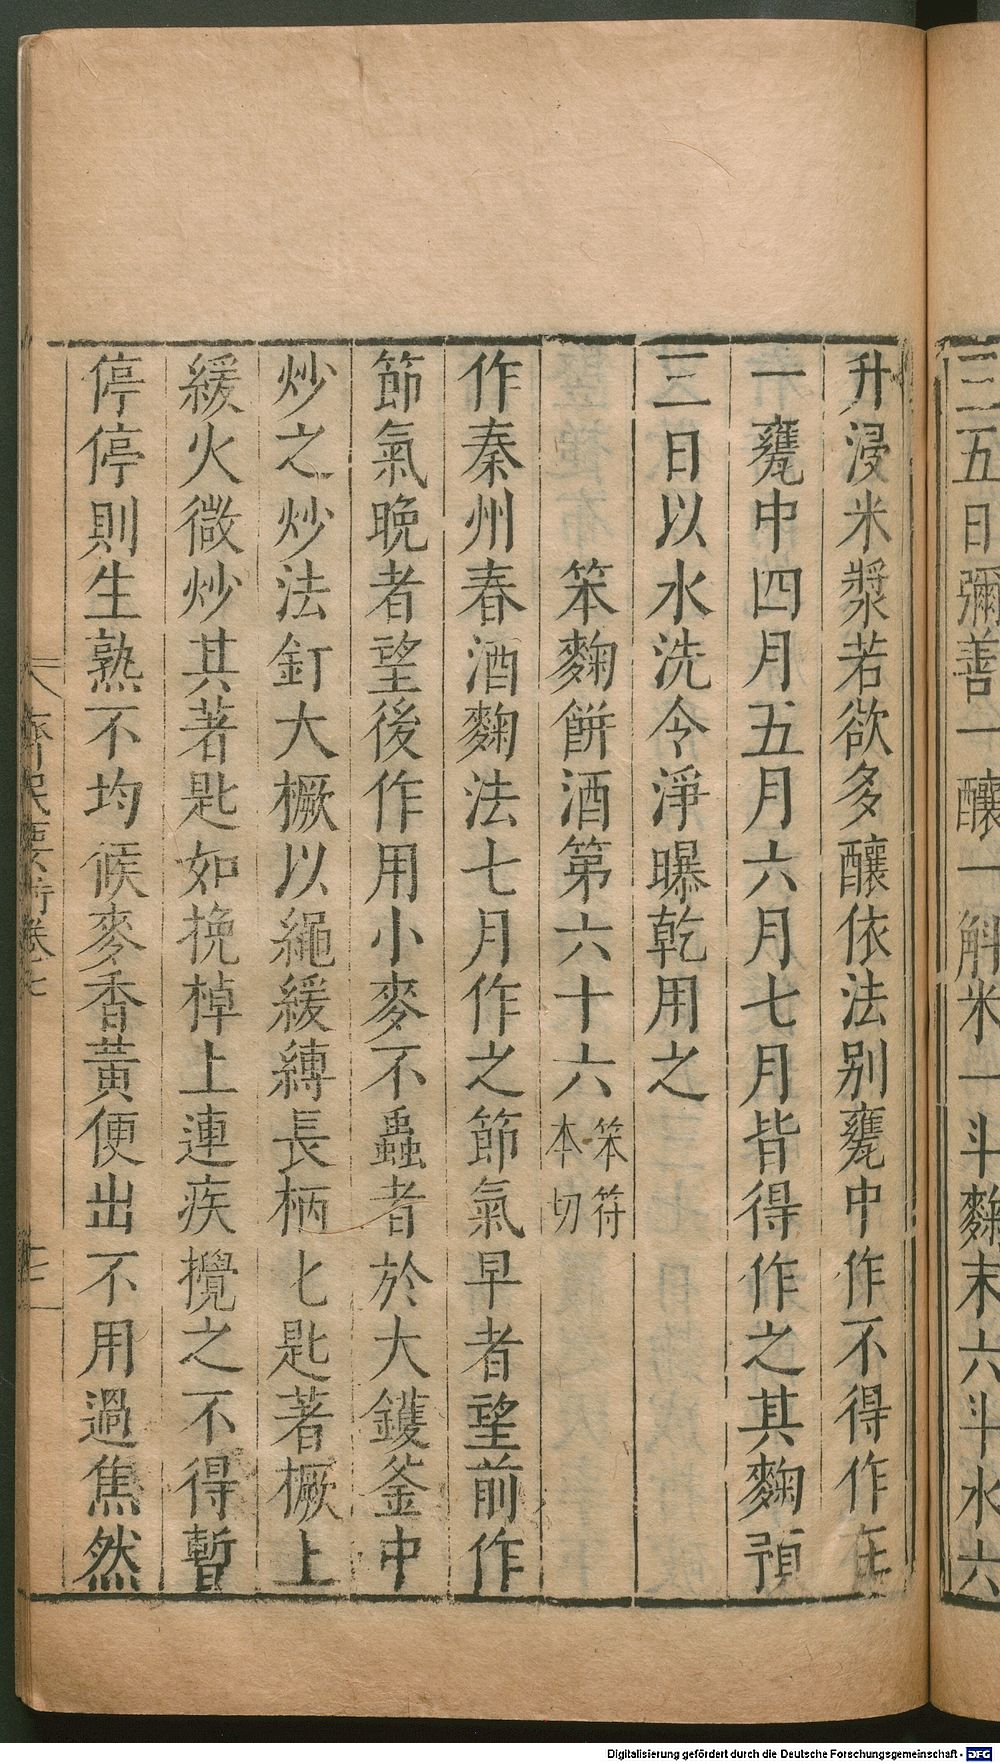 三五日彌善一釀一斛米一斗麴末六斗水六
升浸米漿若欲多釀依法别甕中作不得作在
一甕中四月五月六月七月皆得作之其麴預
三日以水洗令淨曝乾用之
笨麴餅酒第六十六笨符本切
作秦州春酒麴法七月作之節氣早者望前作
節氣晚者望後作用小麥不蟲者於大鑊釜中
炒之炒法釘大橛以繩緩縛長柄匕匙著橛上
緩火微炒其著匙如挽棹上連疾攪之不得暫
停停則生熟不均候麥香黄便出不用過焦然
齊民要術卷七
Digitalisierung gefördert durch die Deutsche Forschungsgemeinschaft - DFG